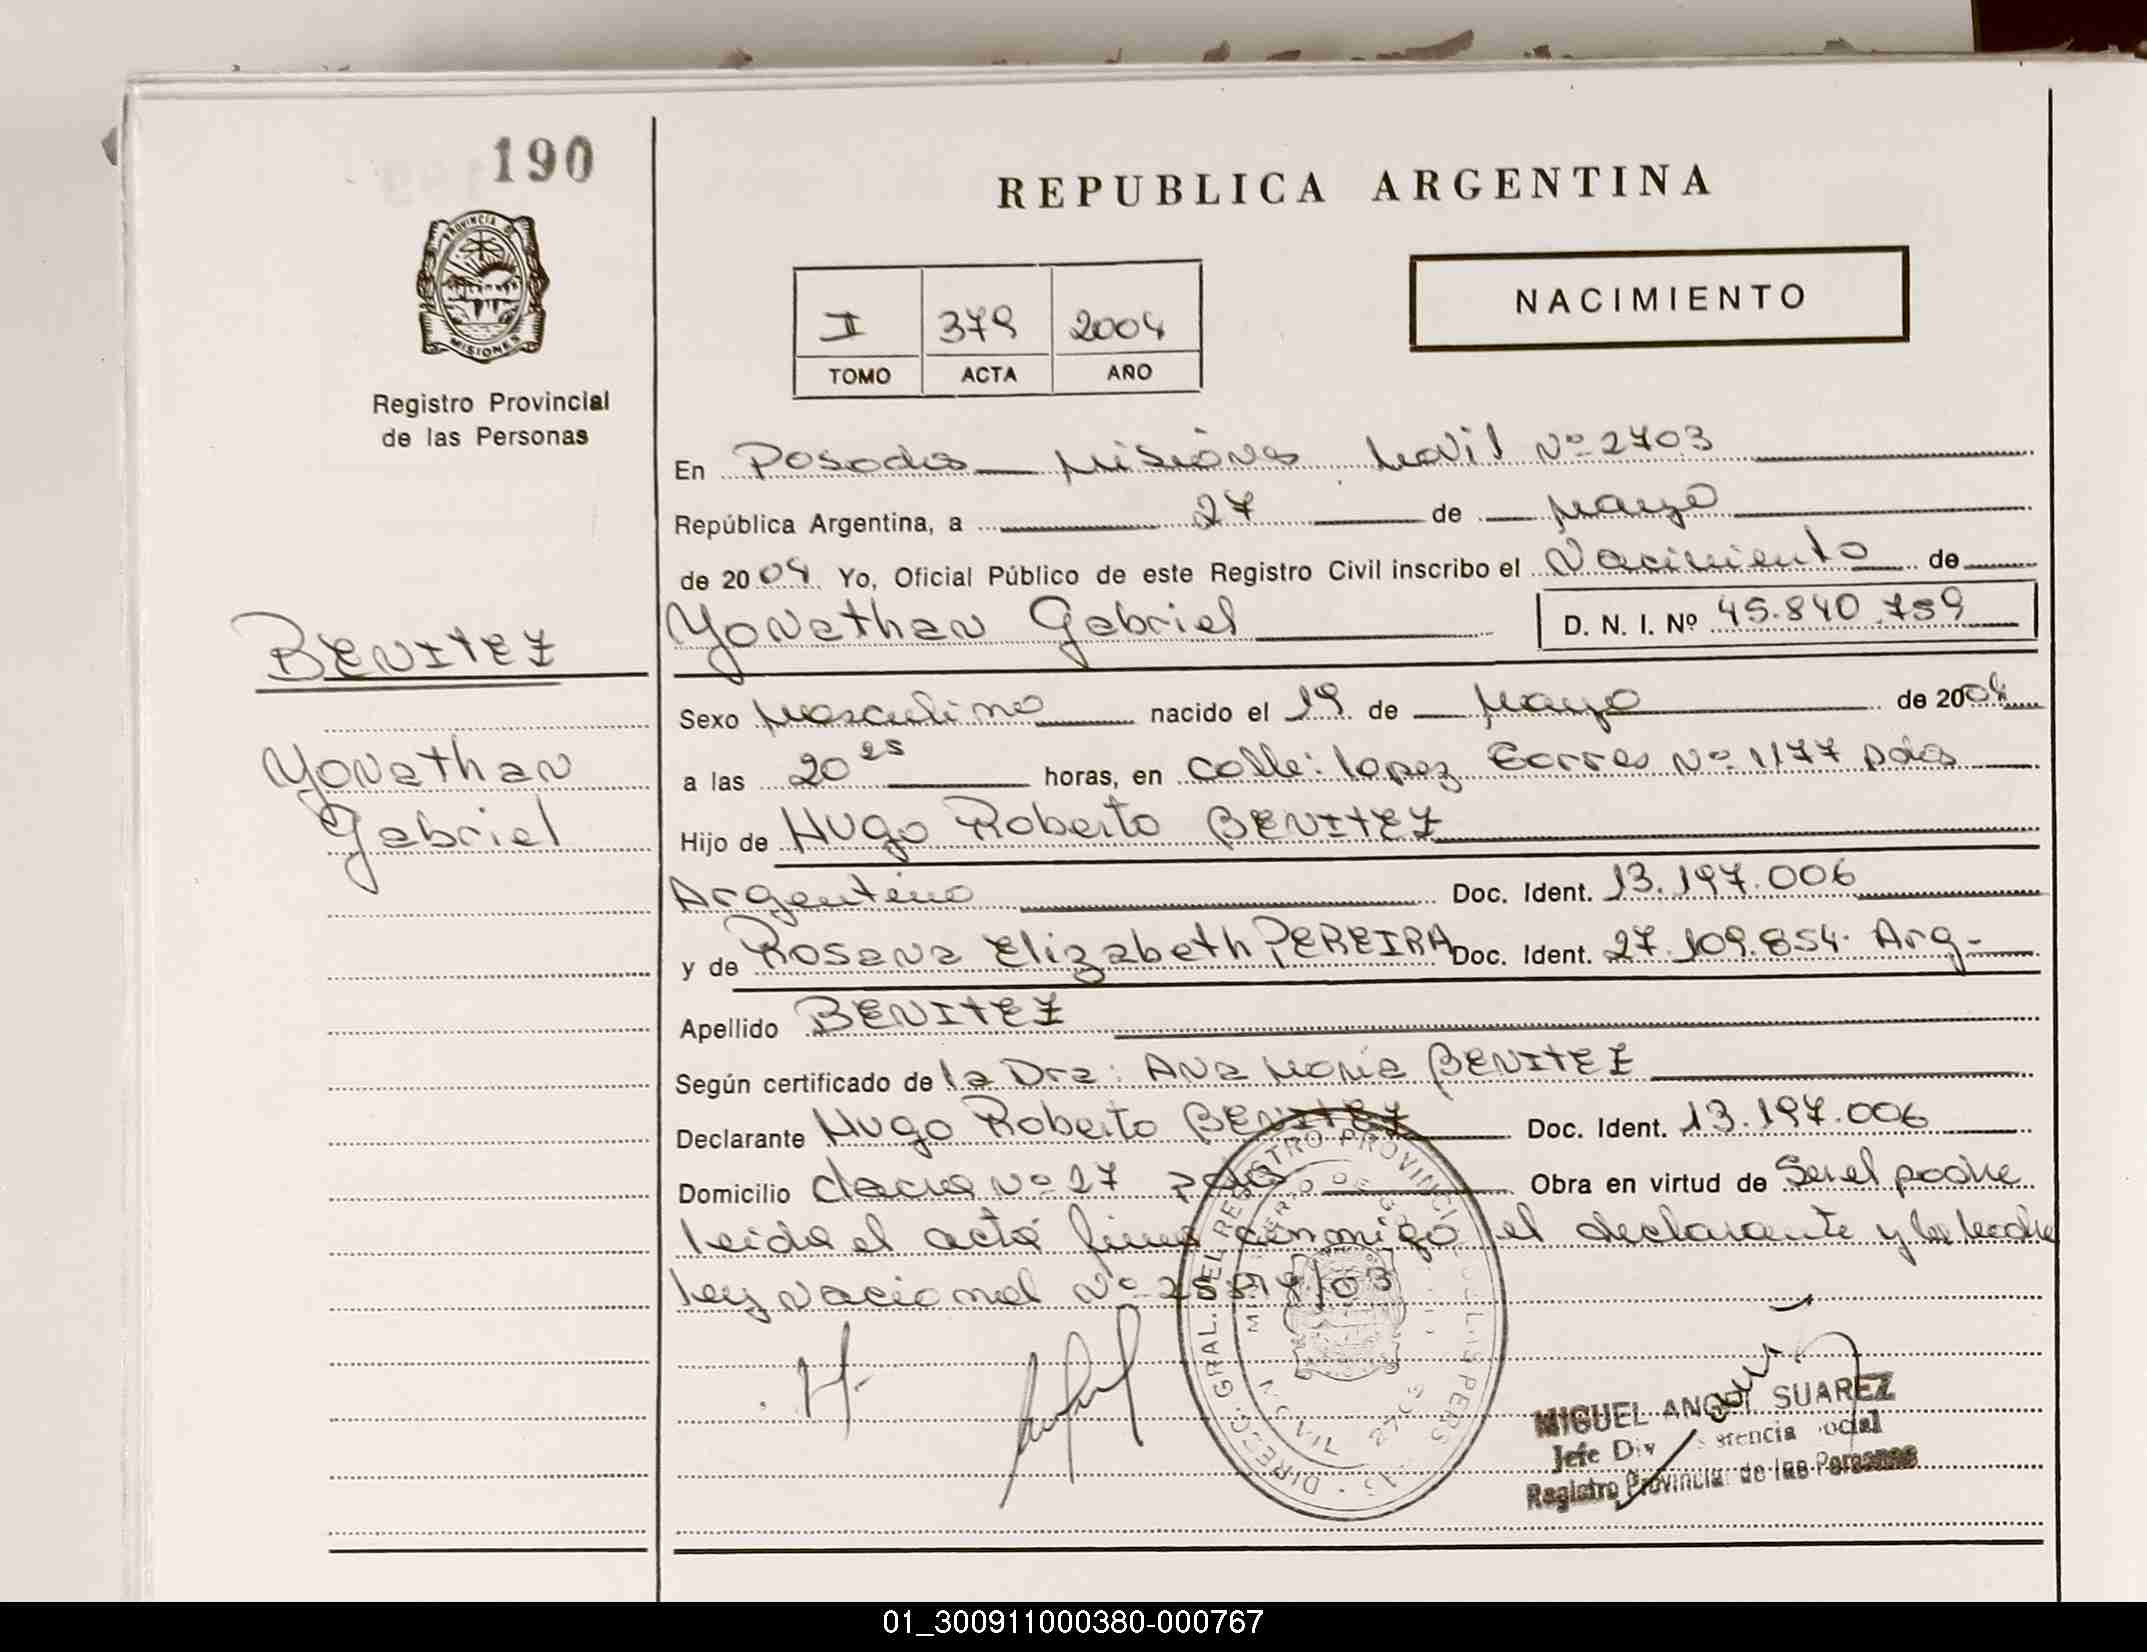 190
PROVINCIA DE
MISIONES
Registro Provincial
de las Personas
BENITEZ
Yonathan
Gabriel
REPUBLICA ARGENTINA
NACIMIENTO
I 379 2004
TOMO ACTA AÑO
En Posadas Misiones Movil Nº 2703
República Argentina, a 27 de Mayo
de 2004 Yo, Oficial Público de este Registro Civil inscribo el Nacimiento de
Yonathan Gabriel D. N. I. Nº 45.840.759
Sexo Masculino nacido el 19 de Mayo de 2004
a las 20 25 horas, en calle: lopez Torres Nº 1177 pdas
Hijo de Hugo Roberto BENITEZ
Argentino Doc. Ident. 13.197.006
y de Rosana Elizabeth PEREIRA Doc. Ident. 27.109.854. Arg-
Apellido BENITEZ
Según certificado de la Dra: Ana Maria BENITEZ
Declarante Hugo Roberto BENITEZ Doc. Ident. 13.197.006
Domicilio chacra Nº 27 pdas Obra en virtud de Ser el padre
leida el acta firma conmigo el declarante y la madre
ley Nacional Nº /03
DIRECC. GRAL. DEL REGISTRO PROVINCIAL
MIGUEL ANGEL SUAREZ
Jefe Div
Registro Provincial de las Personas
01_300911000380-000767